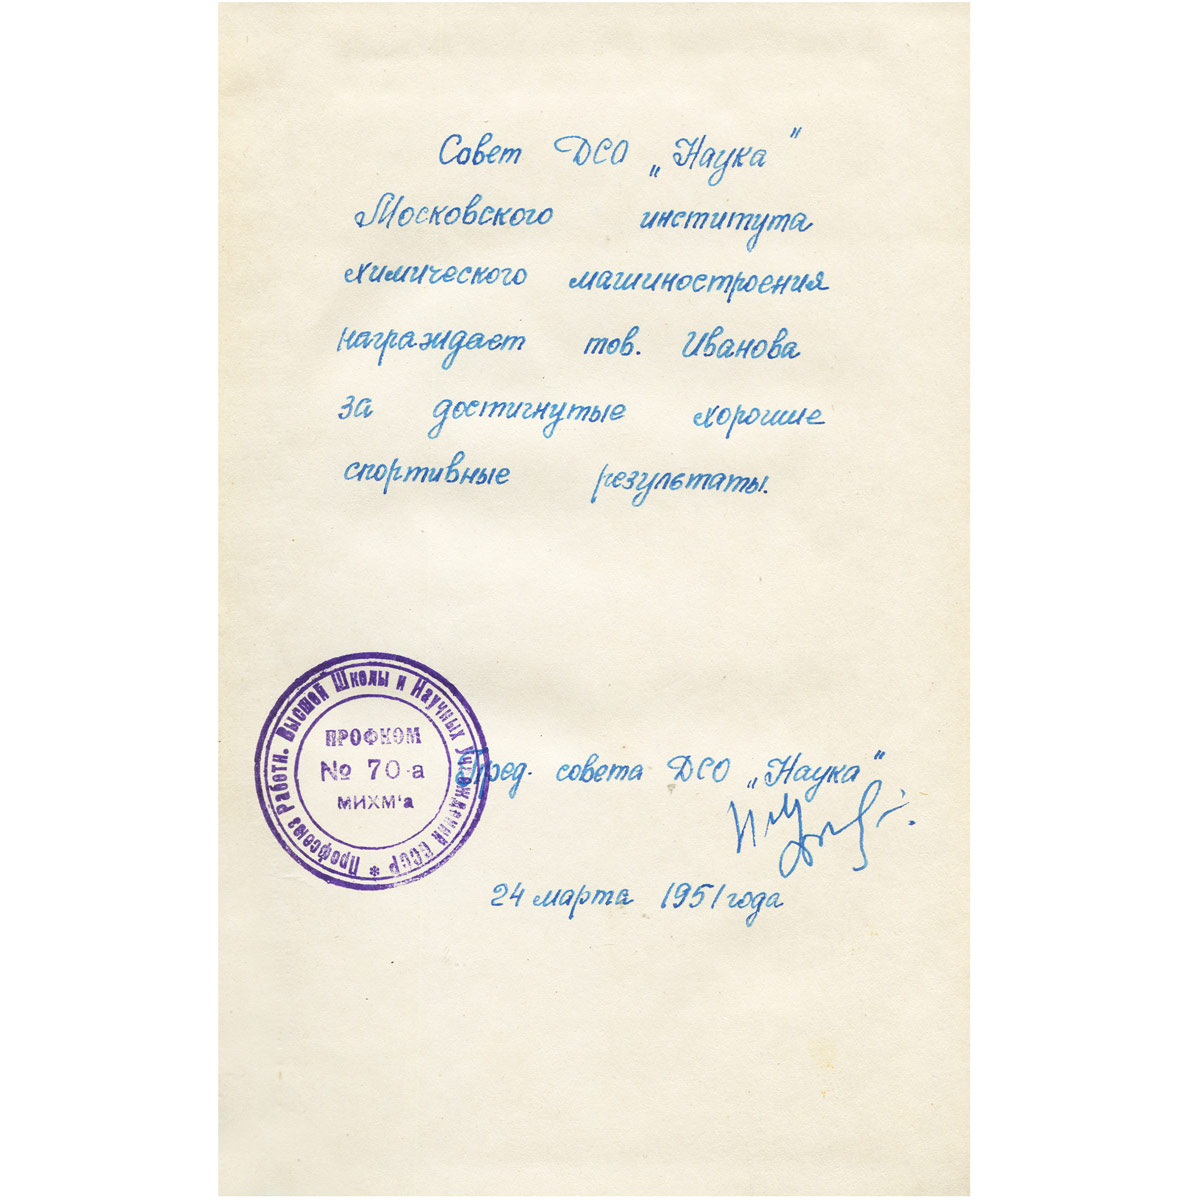 Совет ДСО „Наука"
Московского института
химического машиностроения
награждает тов. Иванова
за достигнутые хорошие
спортивные результаты.
Профсоюз Работн. Высшей Школы и Научных Учреждений СССР *
ПРОФКОМ
№ 70-а
МИХМ'а
Пред. совета ДСО „Наука"
24 марта 1951 года